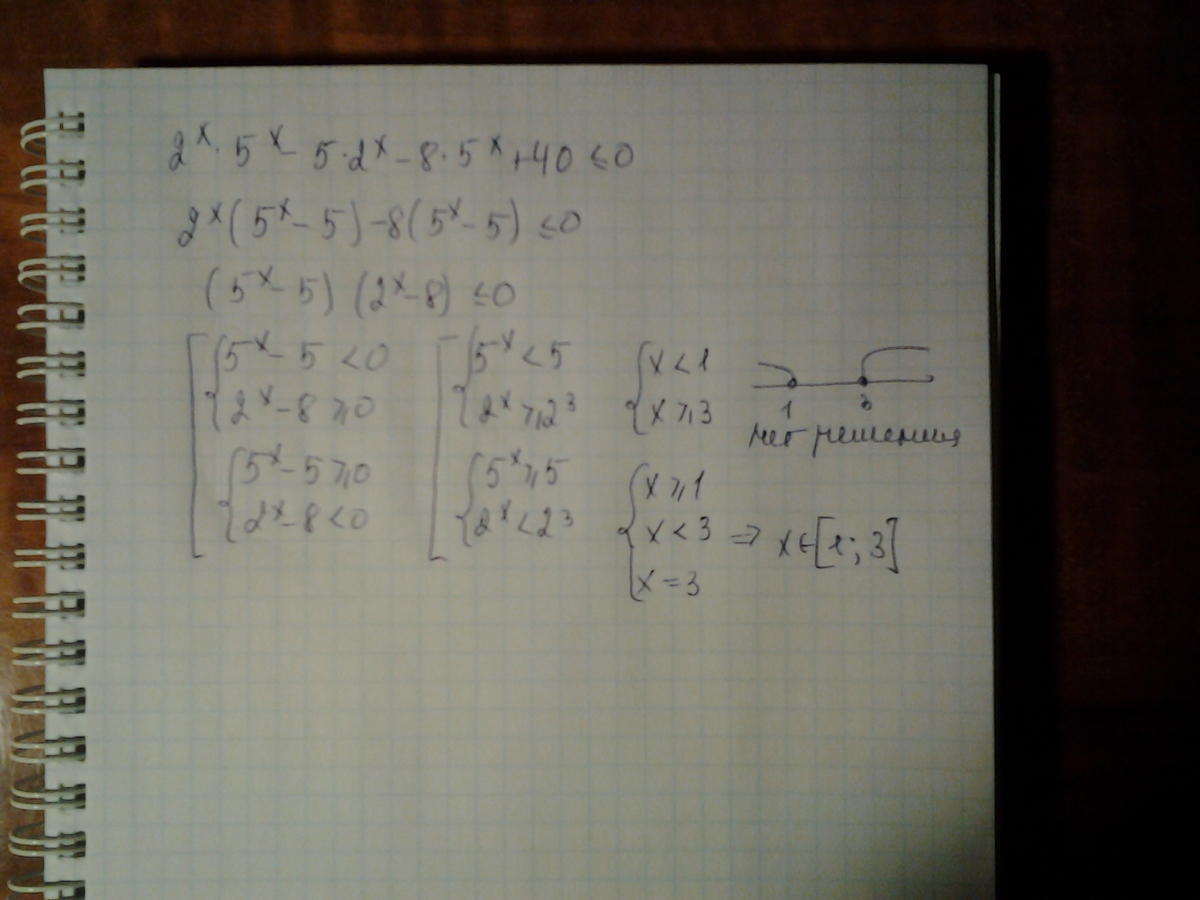 2ˣ · 5ˣ - 5·2ˣ - 8·5ˣ + 40 ≤ 0
2ˣ(5ˣ - 5) - 8(5ˣ - 5) ≤ 0
(5ˣ - 5) (2ˣ - 8) ≤ 0
5ˣ - 5 < 0
2ˣ - 8 ⩾ 0
5ˣ - 5 ⩾ 0
2ˣ - 8 < 0
5ˣ < 5
2ˣ ⩾ 2³
5ˣ ⩾ 5
2ˣ < 2³
x < 1
x ⩾ 3
1 3
нет решения
x ⩾ 1
x < 3 ⇒ x ∈ [1; 3]
x = 3